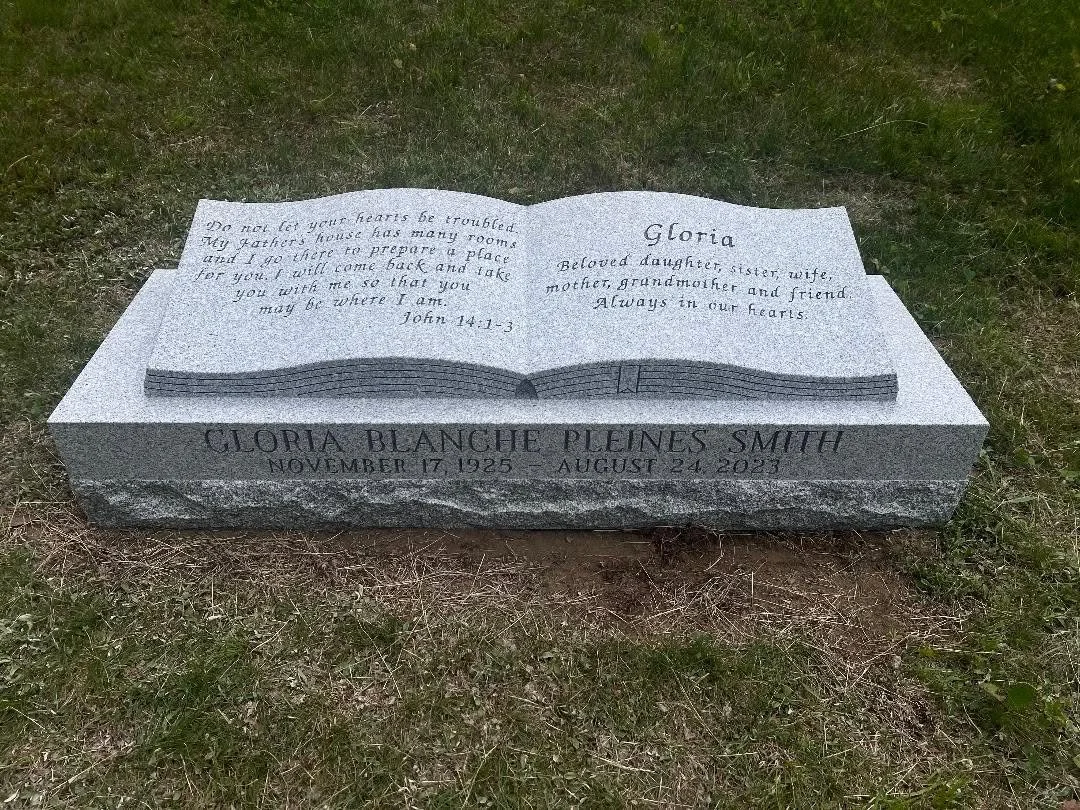 Do not let your hearts be troubled.
My Fathers house has many rooms
and I go there to prepare a place
for you. I will come back and take
you with me so that you
may be where I am.
John 14:1-3
Gloria
Beloved daughter, sister, wife,
mother, grandmother and friend.
Always in our hearts.
GLORIA BLANCHE PLEINES SMITH
NOVEMBER 17, 1925 – AUGUST 24, 2023